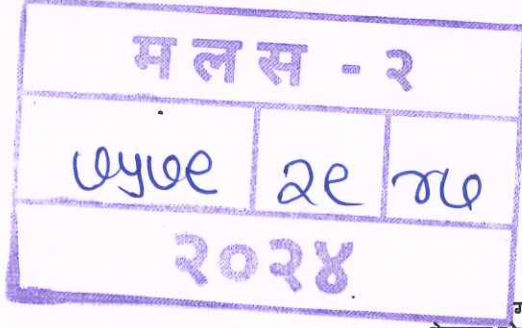 मलस - २
७५७९ २९ ४७
२०२४